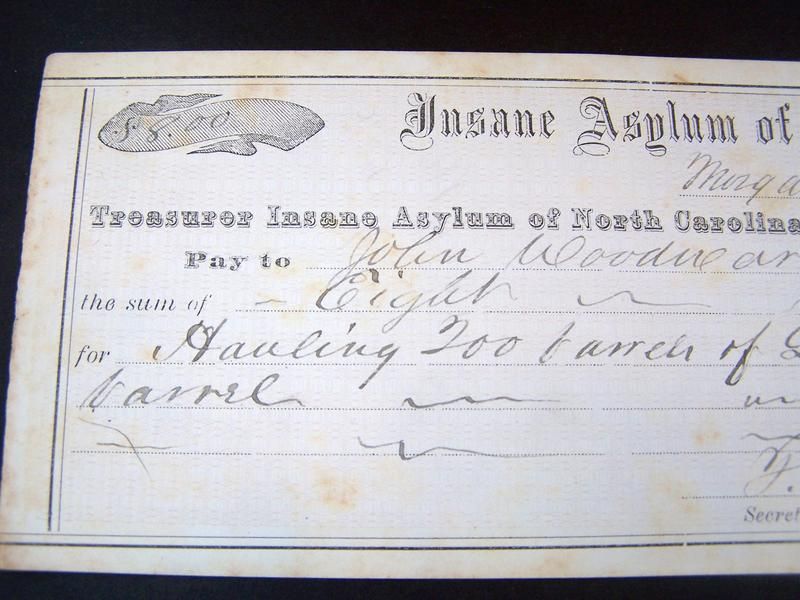 $ 8.00
Insane Asylum of
Morga
Treasurer Insane Asylum of North Carolina
Pay to John Woodwar
the sum of Eight
for Hauling 200 barrels of
barrel
Secret